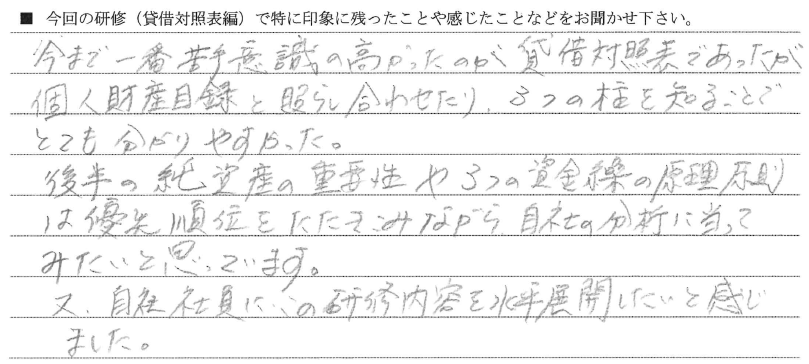 ■ 今回の研修（貸借対照表編）で特に印象に残ったことや感じたことなどをお聞かせ下さい。
今まで一番苦手意識の高かったのが貸借対照表であったが
個人財産目録と照らし合わせたり、3つの柱を知ることで
とても分かりやすかった。
後半の純資産の重要性や3つの資金繰の原理原則
は優先順位をたたきこみながら自社の分析に当って
みたいと思っています。
又、自社社員にこの研修内容を水平展開したいと感じ
ました。